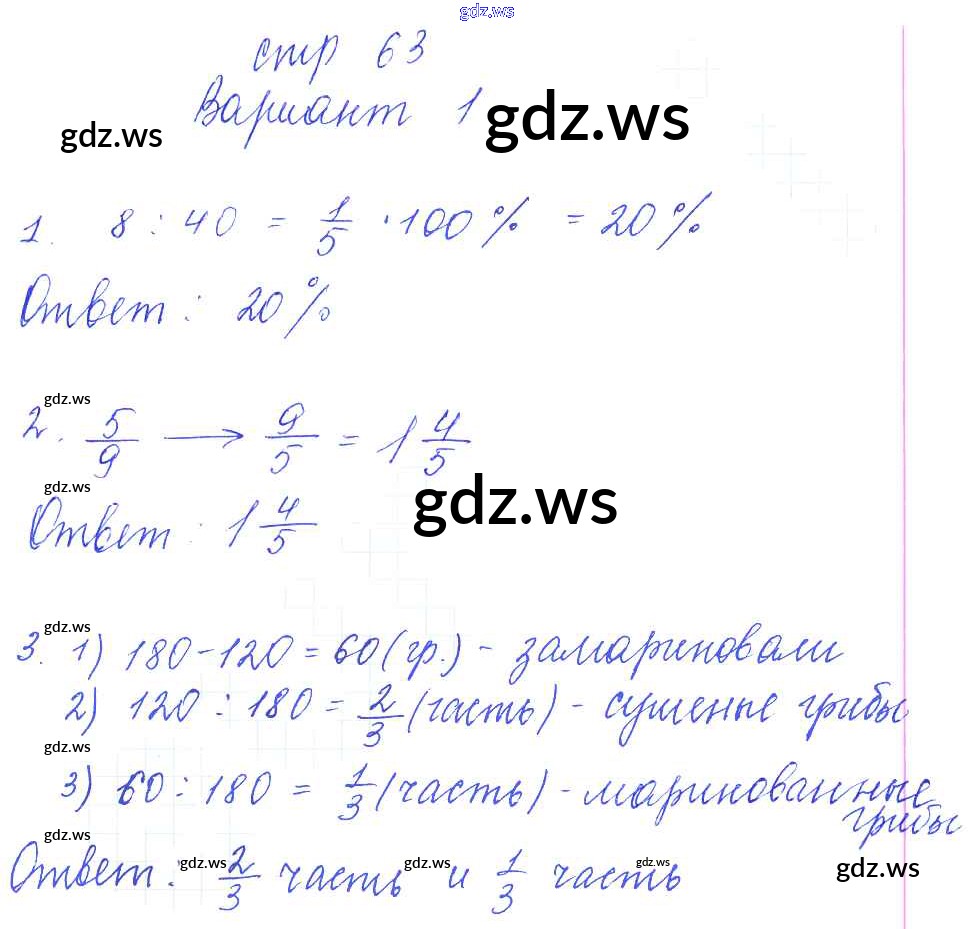 gdz.ws
стр 63
Вариант 1 gdz.ws
gdz.ws
1. 8 : 40 = 1/5 · 100 % = 20 %
Ответ : 20 %
gdz.ws
2. 5/9 → 9/5 = 1 4/5
gdz.ws
gdz.ws
Ответ : 1 4/5
gdz.ws
3. 1) 180 - 120 = 60 (гр.) - замариновали
2) 120 : 180 = 2/3 (часть) - сушеные грибы
gdz.ws
3) 60 : 180 = 1/3 (часть) - маринованные
грибы
gdz.ws
Ответ : gdz.ws 2/3 часть gdz.ws и 1/3 часть gdz.ws gdz.ws